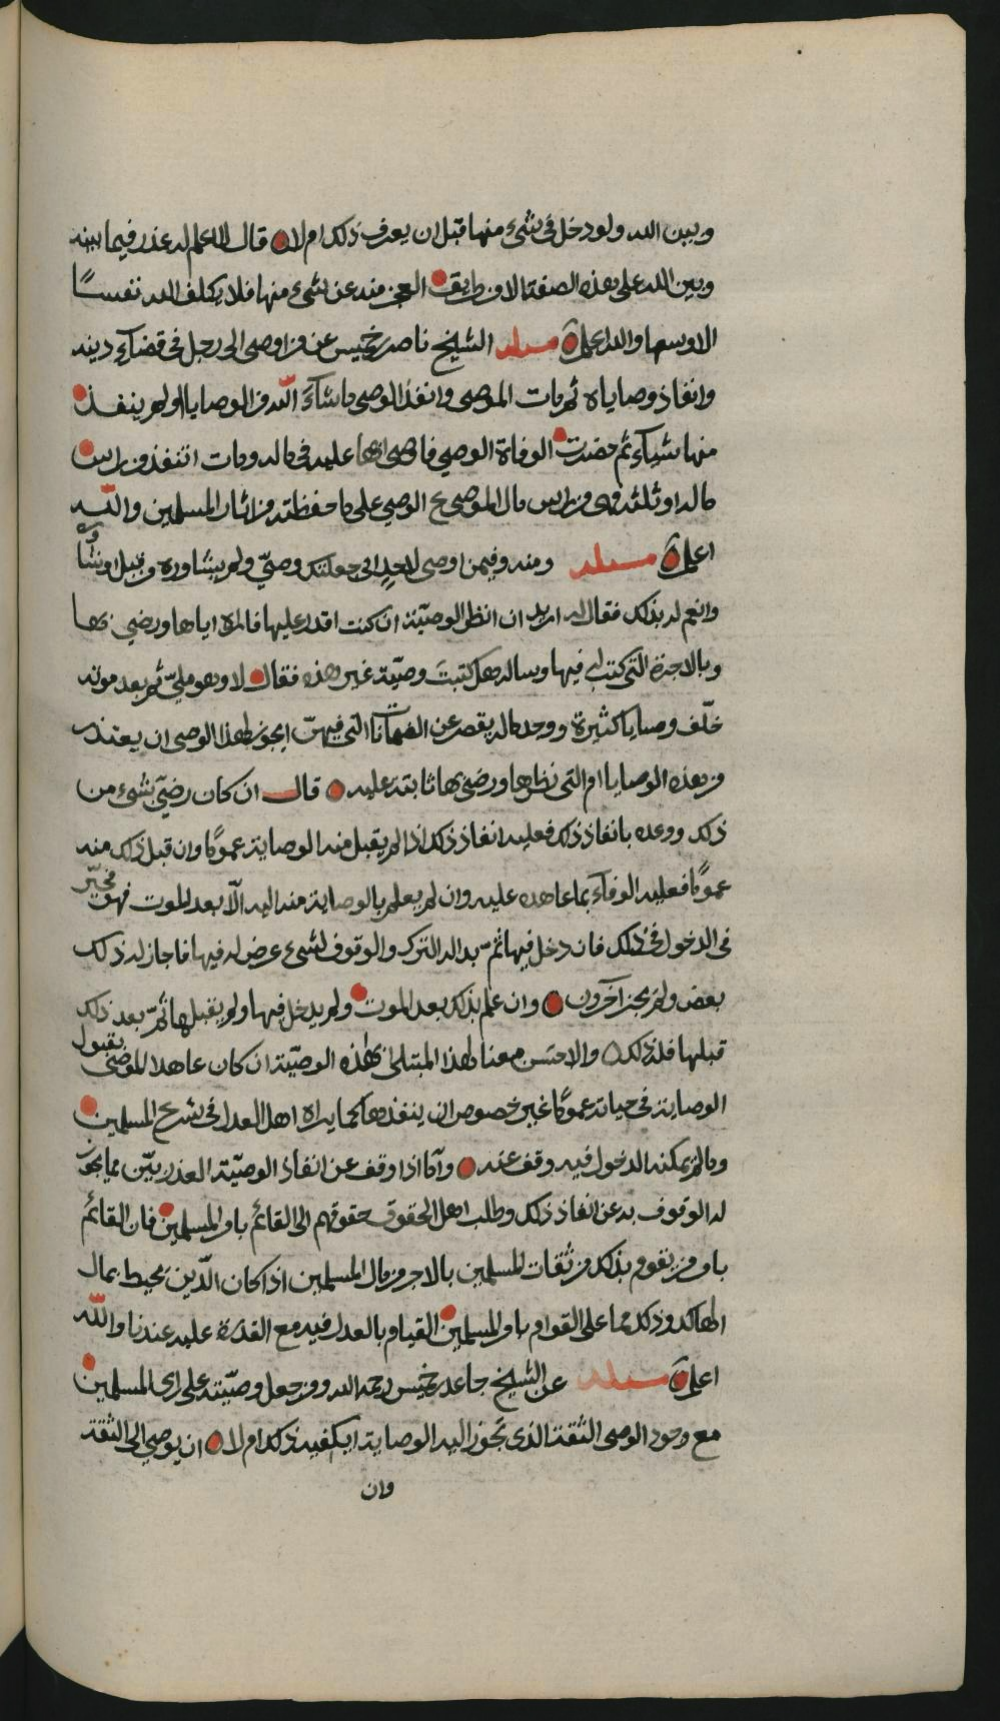 وبين الله ولو دخل في شيء منها قبل ان يعرف ذلك ام لا قال لا اعلم له عذر فيما بينه
وبين الله على هذه الصفة الا من طريق العجز منه عن شيء منها فلا يكلف الله نفسًا
الا وسعها والله اعلم مسئلة الشيخ ناصر بن خميس عن من اوصى الى رجل في قضاء دينه
وانفاذ وصاياه ثم مات الموصي وانفذ الوصي ما شاء الله من الوصايا او لم ينفذ
منها شيئا ثم حضرت الوفاة الوصي فاوصى بها عليه في ماله ومات اتنفذ من راس
ماله او ثلثه وهي من راس مال الموصي ع الوصي على ما حفظته من اثار المسلمين والله
اعلم مسئلة ومنه وفيمن اوصى لاحد اني جعلتك وصيّي ولم يشاوره وقبل او شاوره
وانعم له بذلك فقال له اريد ان انظر الوصيّة ان كنت اقدر عليها فاراه اياها ورضي بها
وبالاجرة التي كتب له فيها وساله هل كتبت وصيّة غير هذه فقال لا وهو مليّ ثم بعد موته
خلّف وصايا كثيرة ووجد ماله يقصر عن الضمانات التي فيهنّ ايجوز لهذا الوصي ان يعتذر
من هذه الوصايا ام التي نظرها ورضي بها ثابتة عليه قال ان كان رضي بشيء من
ذلك ووعده بانفاذ ذلك فعليه انفاذ ذلك اذا لم يقبل منه الوصاية عمومًا وان قبل ذلك منه
عمومًا فعليه الوفاء بما عاهده عليه وان لم يعلم بالوصاية منه اليه الّا بعد الموت فهو مخيّر
في الدخول في ذلك فان دخل فيها ثمّ بدا له الترك والوقوف لشيء عرض له فيها فاجاز له ذلك
بعض ولم يجز آخرون وان علم بذلك بعد الموت ولم يدخل فيها ولم يقبلها ثمّ بعد ذلك
قبلها فله ذلك والاحسن معنا لهذا المبتلى بهذه الوصيّة ان كان عاهدا للموصي بقبول
الوصاية في حياته عمومًا غير خصوص ان ينفذها كما يراه اهل العدل في شرع المسلمين
وما لم يمكنه الدخول فيه وقف عنه وامّا اذا وقف عن انفاذ الوصيّة لعذر بيّن مما يجوز
له الوقوف به عن انفاذ ذلك وطلب اهل الحقوق حقوقهم الى القائم بامر المسلمين فان القائم
يامر من يقوم بذلك من ثقات المسلمين بالاجر من مال المسلمين اذا كان الدّين محيط بمال
الهالك وذلك مما على القوام بامر المسلمين القيام بالعدل فيه مع القدرة عليه عندنا والله
اعلم مسئلة عن الشيخ جاعد بن خميس رحمه الله ومن جعل وصيّته على راى المسلمين
مع وجود الوصي الثقة الذي تجوز اليه الوصاية ايكفيه ذلك ام لا ان يوصي الى الثقة
وان